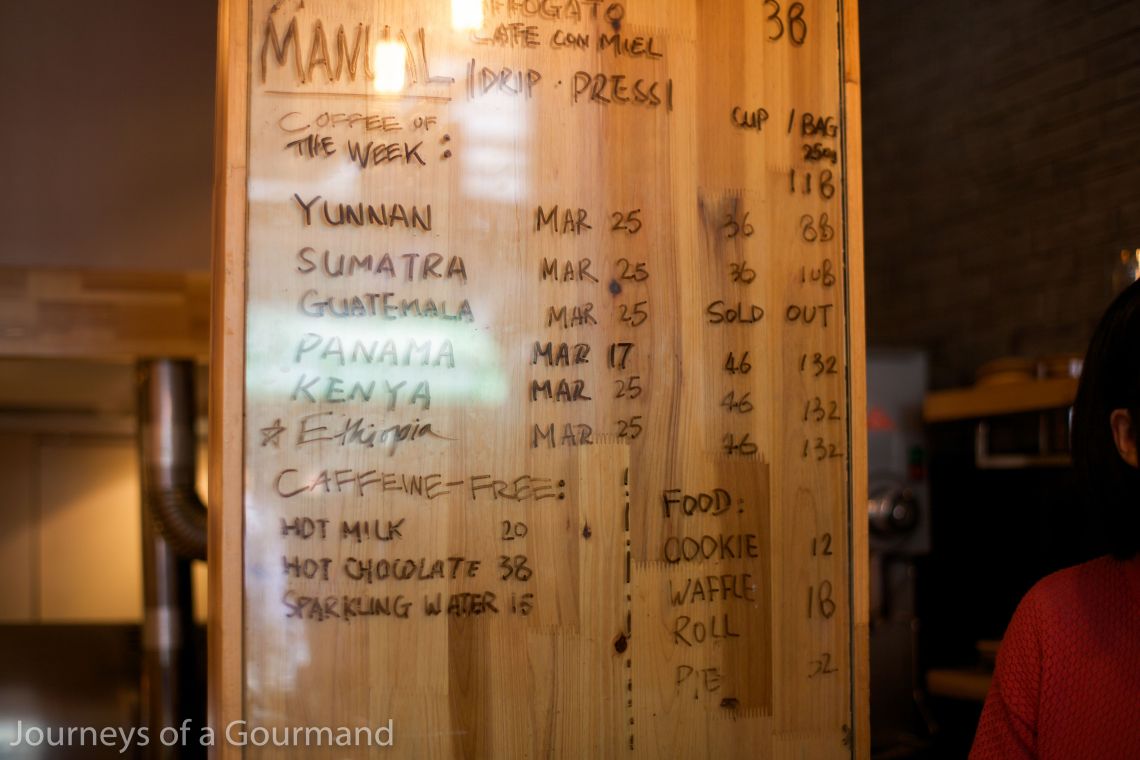 AFFOGATO 38
CAFE CON MIEL
MANUAL /DRIP · PRESS/
COFFEE OF THE WEEK: CUP / BAG
250g
118
YUNNAN MAR 25 36 88
SUMATRA MAR 25 36 108
GUATEMALA MAR 25 SOLD OUT
PANAMA MAR 17 46 132
KENYA MAR 25 46 132
☆ Ethiopia MAR 25 46 132
CAFFEINE-FREE:
HOT MILK 20
HOT CHOCOLATE 38
SPARKLING WATER 15
FOOD:
COOKIE 12
WAFFLE 18
ROLL
PIE 32
Journeys of a Gourmand